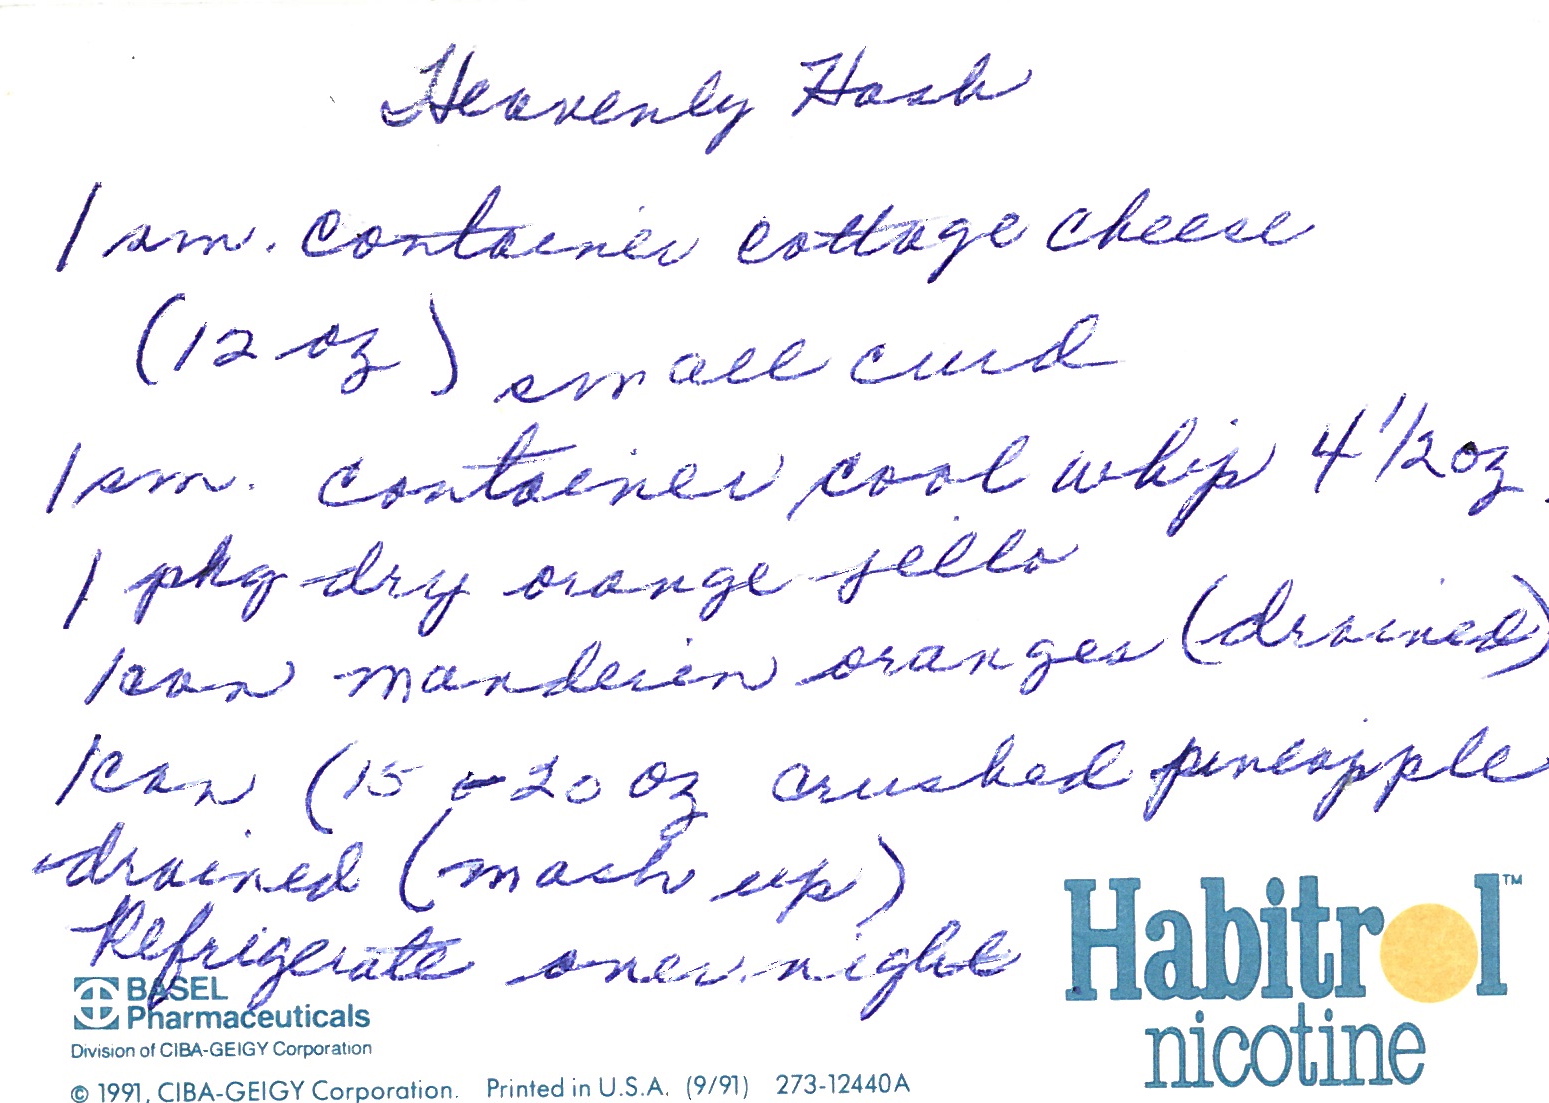 Heavenly Hash
1 sm. container cottage cheese
(12 oz) small curd
1 sm. container cool whip 4 1/2 oz.
1 pkg dry orange jello
1 can manderin oranges (drained)
1 can (15 - 20 oz crushed pineapple
drained (mash up)
Refrigerate over night
BASEL
Pharmaceuticals
Division of CIBA-GEIGY Corporation
© 1991, CIBA-GEIGY Corporation. Printed in U.S.A. (9/91) 273-12440A
Habitrol™
nicotine